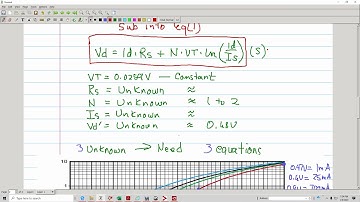 Sub into eq(1)
Vd = Id·Rs + N·VT·Ln(Id/Is) (5).
VT = 0.0259V — Constant
Rs = Unknown ≈
N = Unknown ≈ 1 to 2
Is = Unknown ≈
Vd' = Unknown ≈ 0.48V
3 Unknown → Need 3 equations
10
0.47V = 1mA